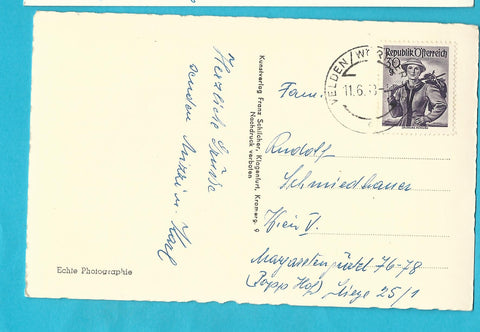 Herzliche Grüsse
senden Mitzi u. Karl
Echte Photographie
Kunstverlag Franz Schilcher, Klagenfurt, Kramerg. 9
Nachdruck verboten
VELDEN
11.6.
Republik Österreich
30
Fam.
Rudolf
Schmiedbauer
Wien V.
Margaretengürtel 76-78
(Popp Hof) Stiege 25/1